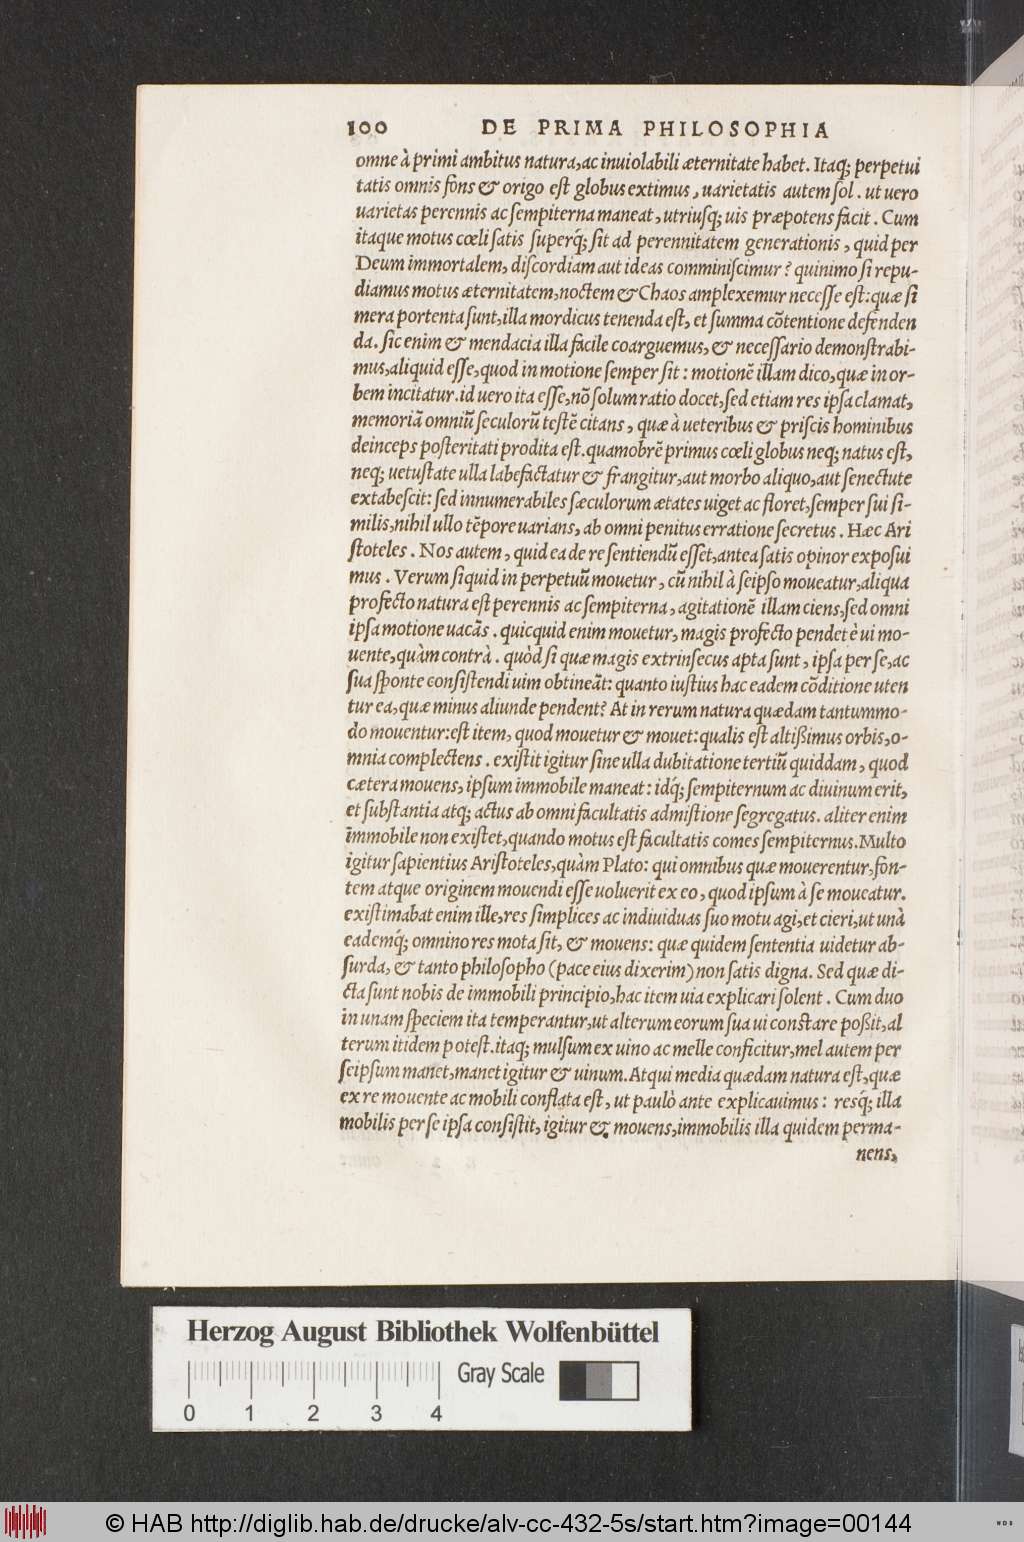 100 DE PRIMA PHILOSOPHIA
omne à primi ambitus natura, ac inuiolabili æternitate habet. Itaq; perpetui
tatis omnis fons & origo est globus extimus, uarietatis autem sol. ut uero
uarietas perennis ac sempiterna maneat, utriusq; uis præpotens facit. Cum
itaque motus cœli satis superq́; sit ad perennitatem generationis, quid per
Deum immortalem, discordiam aut ideas comminiscimur? quinimo si repu-
diamus motus æternitatem, noctem & Chaos amplexemur necesse est: quæ si
mera portenta sunt, illa mordicus tenenda est, et summa cõtentione defenden
da. sic enim & mendacia illa facile coarguemus, & necessario demonstrabi-
mus, aliquid esse, quod in motione semper sit: motionẽ illam dico, quæ in or-
bem incitatur. id uero ita esse, nõ solum ratio docet, sed etiam res ipsa clamat,
memoriã omniũ seculorũ testẽ citans, quæ à ueteribus & priscis hominibus
deinceps posteritati prodita est. quamobrẽ primus cœli globus neq; natus est,
neq; uetustate ulla labefactatur & frangitur, aut morbo aliquo, aut senectute
extabescit: sed innumerabiles sæculorum ætates uiget ac floret, semper sui si-
milis, nihil ullo tẽpore uarians, ab omni penitus erratione secretus. Hæc Ari
stoteles. Nos autem, quid ea de re sentiendũ esset, antea satis opinor exposui
mus. Verum si quid in perpetuũ mouetur, cũ nihil à seipso moueatur, aliqua
profecto natura est perennis ac sempiterna, agitationẽ illam ciens, sed omni
ipsa motione uacãs. quicquid enim mouetur, magis profecto pendet è ui mo-
uente, quàm contrà. quòd si quæ magis extrinsecus apta sunt, ipsa per se, ac
sua sponte consistendi uim obtineãt: quanto iustius hac eadem cõditione uten
tur ea, quæ minus aliunde pendent? At in rerum natura quædam tantummo-
do mouentur: est item, quod mouetur & mouet: qualis est altißimus orbis, o-
mnia complectens. existit igitur sine ulla dubitatione tertiũ quiddam, quod
cætera mouens, ipsum immobile maneat: idq́; sempiternum ac diuinum erit,
et substantia atq; actus ab omni facultatis admistione segregatus. aliter enim
immobile non existet, quando motus est facultatis comes sempiternus. Multo
igitur sapientius Aristoteles, quàm Plato: qui omnibus quæ mouerentur, fon-
tem atque originem mouendi esse uoluerit ex eo, quod ipsum à se moueatur.
existimabat enim ille, res simplices ac indiuiduas suo motu agi, et cieri, ut unà
eademq́; omnino res mota sit, & mouens: quæ quidem sententia uidetur ab-
surda, & tanto philosopho (pace eius dixerim) non satis digna. Sed quæ di-
cta sunt nobis de immobili principio, hac item uia explicari solent. Cum duo
in unam speciem ita temperantur, ut alterum eorum sua ui constare poßit, al
terum itidem potest. itaq; mulsum ex uino ac melle conficitur, mel autem per
seipsum manet, manet igitur & uinum. Atqui media quædam natura est, quæ
ex re mouente ac mobili conflata est, ut paulò ante explicauimus: resq́; illa
mobilis per se ipsa consistit, igitur & mouens, immobilis illa quidem perma-
nens,
Herzog August Bibliothek Wolfenbüttel
Gray Scale
0 1 2 3 4
© HAB http://diglib.hab.de/drucke/alv-cc-432-5s/start.htm?image=00144